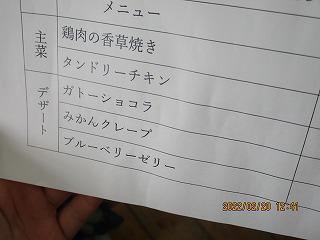 メニュー
主菜
鶏肉の香草焼き
タンドリーチキン
デザート
ガトーショコラ
みかんクレープ
ブルーベリーゼリー
2022/02/20 12:41